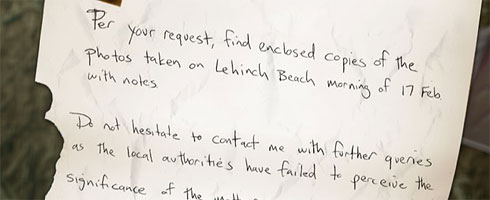 Per your request, find enclosed copies of the
photos taken on Lehinch Beach morning of 17 Feb
with notes.
Do not hesitate to contact me with further queries
as the local authorities have failed to perceive the
significance of the